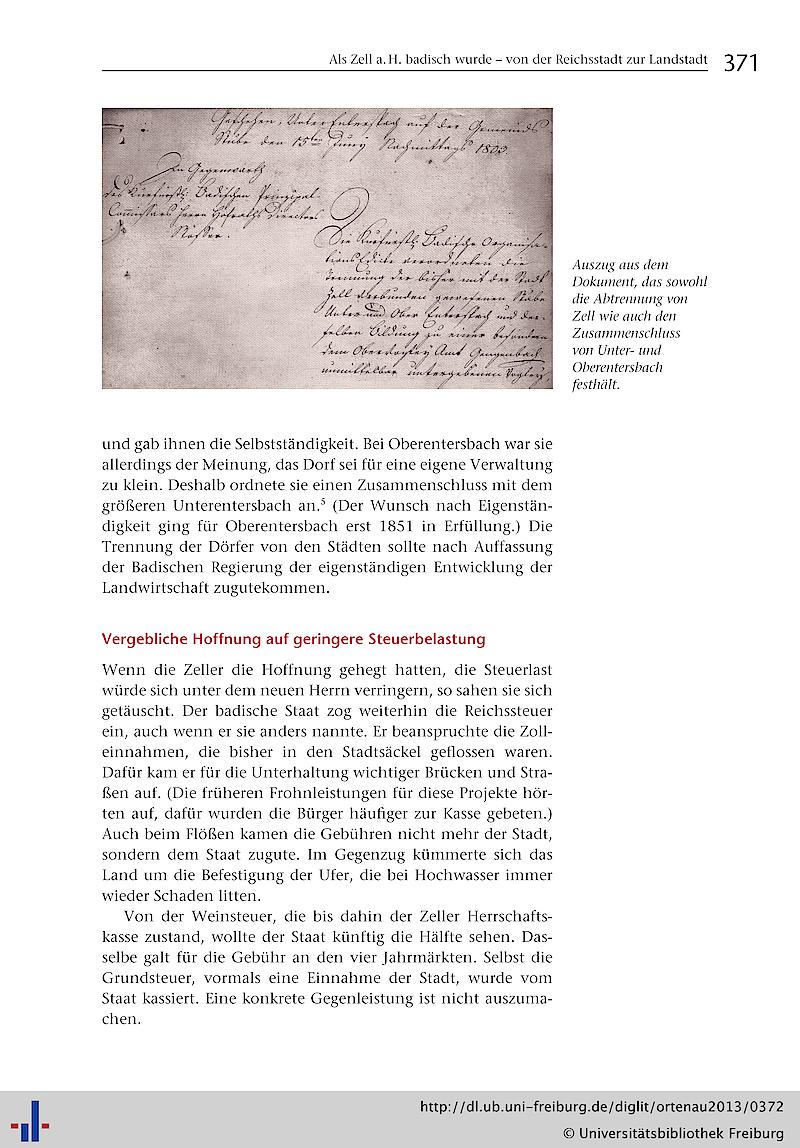 Als Zell a. H. badisch wurde – von der Reichsstadt zur Landstadt 371
Geschehen, Unterentersbach auf der Gemeinds
Stube den 15ten Juny Nachmittags 1803.
In Gegenwarth
des Kurfürstl: Badischen Prinzipal-
Commissars Herrn Hofraths Directors
Die Kurfürstl: Badische Organisa-
tions Edicte verordneten die
Trennung der bisher mit der Stadt
Zell verbunden gewesenen Stäbe
Unter und Ober Entersbach und der-
selben Bildung zu einer besondern
dem Obervogtey Amt Gengenbach
unmittelbar untergebenen Vogtey,
Auszug aus dem
Dokument, das sowohl
die Abtrennung von
Zell wie auch den
Zusammenschluss
von Unter- und
Oberentersbach
festhält.
und gab ihnen die Selbstständigkeit. Bei Oberentersbach war sie
allerdings der Meinung, das Dorf sei für eine eigene Verwaltung
zu klein. Deshalb ordnete sie einen Zusammenschluss mit dem
größeren Unterentersbach an.⁵ (Der Wunsch nach Eigenstän-
digkeit ging für Oberentersbach erst 1851 in Erfüllung.) Die
Trennung der Dörfer von den Städten sollte nach Auffassung
der Badischen Regierung der eigenständigen Entwicklung der
Landwirtschaft zugutekommen.
Vergebliche Hoffnung auf geringere Steuerbelastung
Wenn die Zeller die Hoffnung gehegt hatten, die Steuerlast
würde sich unter dem neuen Herrn verringern, so sahen sie sich
getäuscht. Der badische Staat zog weiterhin die Reichssteuer
ein, auch wenn er sie anders nannte. Er beanspruchte die Zoll-
einnahmen, die bisher in den Stadtsäckel geflossen waren.
Dafür kam er für die Unterhaltung wichtiger Brücken und Stra-
ßen auf. (Die früheren Frohnleistungen für diese Projekte hör-
ten auf, dafür wurden die Bürger häufiger zur Kasse gebeten.)
Auch beim Flößen kamen die Gebühren nicht mehr der Stadt,
sondern dem Staat zugute. Im Gegenzug kümmerte sich das
Land um die Befestigung der Ufer, die bei Hochwasser immer
wieder Schaden litten.
Von der Weinsteuer, die bis dahin der Zeller Herrschafts-
kasse zustand, wollte der Staat künftig die Hälfte sehen. Das-
selbe galt für die Gebühr an den vier Jahrmärkten. Selbst die
Grundsteuer, vormals eine Einnahme der Stadt, wurde vom
Staat kassiert. Eine konkrete Gegenleistung ist nicht auszuma-
chen.
http://dl.ub.uni-freiburg.de/diglit/ortenau2013/0372
© Universitätsbibliothek Freiburg